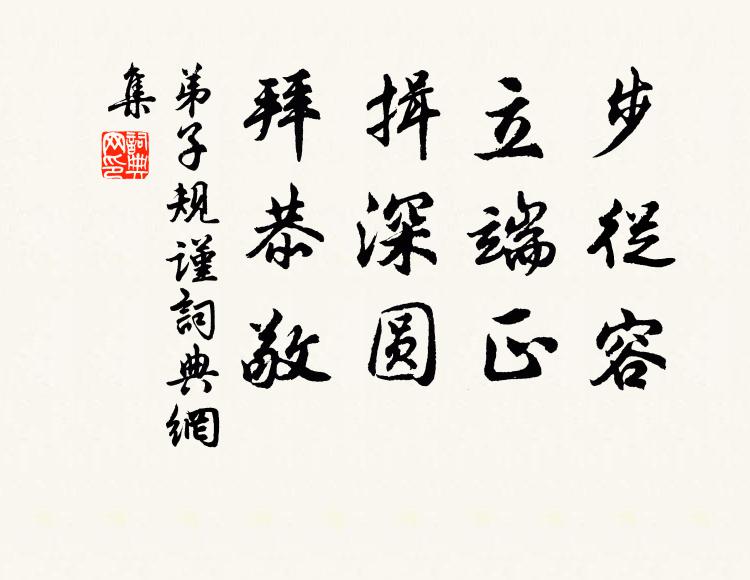 步從容
立端正
揖深圓
拜恭敬
弟子規謹詞典網
集
詞典
网印